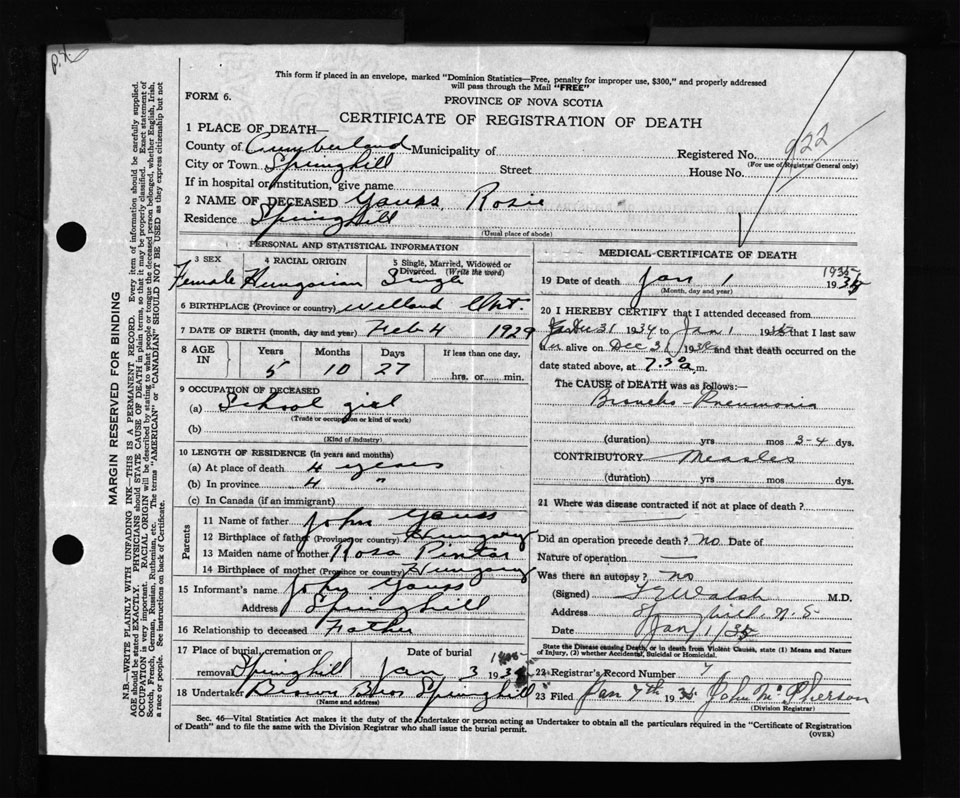 P.X.
This form if placed in an envelope, marked "Dominion Statistics—Free, penalty for improper use, $300," and properly addressed
will pass through the Mail "FREE"
FORM 6.
PROVINCE OF NOVA SCOTIA
CERTIFICATE OF REGISTRATION OF DEATH
1 PLACE OF DEATH—
County of Cumberland Municipality of Registered No. 922
(For use of Registrar General only)
City or Town Springhill Street House No.
If in hospital or institution, give name
2 NAME OF DECEASED Yauss, Rosie
Residence Springhill
(Usual place of abode)
PERSONAL AND STATISTICAL INFORMATION
3 SEX 4 RACIAL ORIGIN 5 Single, Married, Widowed or Divorced. (Write the word)
Female Hungarian Single
6 BIRTHPLACE (Province or country) Welland Ont.
7 DATE OF BIRTH (month, day and year) Feb 4 1929
8 AGE IN Years Months Days If less than one day.
5 10 27 hrs. or min.
9 OCCUPATION OF DECEASED
(a) School girl
(Trade or occupation or kind of work)
(b)
(Kind of industry)
10 LENGTH OF RESIDENCE (In years and months)
(a) At place of death 4 years
(b) In province 4 "
(c) In Canada (if an immigrant)
Parents
11 Name of father John Yauss
12 Birthplace of father (Province or country) Hungary
13 Maiden name of mother Rosa Pintar
14 Birthplace of mother (Province or country) Hungary
15 Informant's name John Yauss
Address Springhill
16 Relationship to deceased Father
17 Place of burial, cremation or removal Date of burial
Springhill Jan 3 1935
18 Undertaker Brown Bros Springhill
(Name and address)
MEDICAL CERTIFICATE OF DEATH
19 Date of death Jan 1 1935
(Month, day and year)
20 I HEREBY CERTIFY that I attended deceased from
Dec 31 1934 to Jan 1 1935 that I last saw
her alive on Dec 31 1934 and that death occurred on
date stated above, at 7.30 a.m.
The CAUSE of DEATH was as follows:—
Broncho-Pneumonia
(duration) yrs mos 3-4 dys.
CONTRIBUTORY Measles
(duration) yrs mos dys.
21 Where was disease contracted if not at place of death?
Did an operation precede death? no Date of
Nature of operation —
Was there an autopsy? no
(Signed) Walsh M.D.
Address Springhill. N.S
Date Jan 1/35
State the Disease causing Death, or in death from Violent Causes, state (1) Means and Nature of Injury, (2) whether Accidental, Suicidal or Homicidal.
22 Registrar's Record Number 7
23 Filed Jan 7th 1935 John McPherson
(Division Registrar)
Sec. 46—Vital Statistics Act makes it the duty of the Undertaker or person acting as Undertaker to obtain all the particulars required in the "Certificate of Registration
of Death" and to file the same with the Division Registrar who shall issue the burial permit.
(OVER)
MARGIN RESERVED FOR BINDING
N.B.—WRITE PLAINLY WITH UNFADING INK—THIS IS A PERMANENT RECORD. Every item of information should be carefully supplied.
AGE should be stated EXACTLY. PHYSICIANS should STATE CAUSE OF DEATH in plain terms, so that it may be properly classified. Exact statement of
OCCUPATION is very important. RACIAL ORIGIN will be described by stating to what people or tongue the deceased person belonged, whether English, Irish,
Scotch, French, German, Russian, Ruthenian, etc. The terms "AMERICAN" or "CANADIAN" SHOULD NOT BE USED as they express citizenship but not
a race or people. See instructions on back of Certificate.